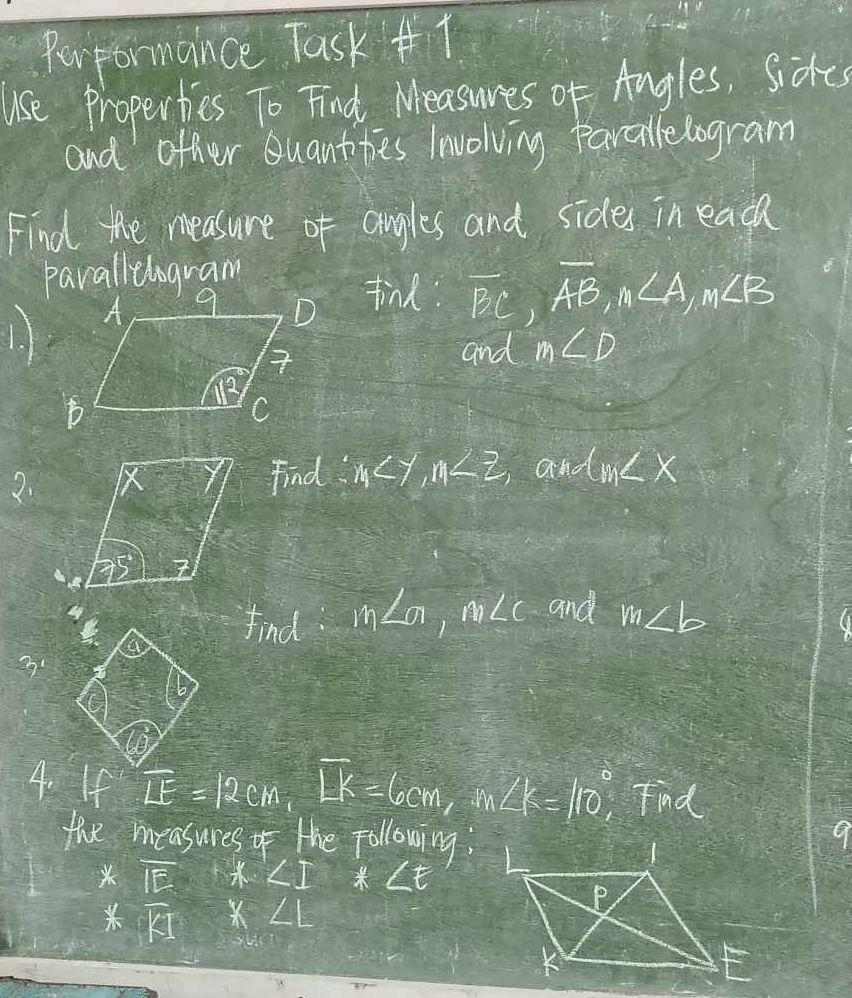 Performance Task # 1
Use Properties To Find Measures of Angles, Sides
and other Quantities Involving Parallelogram
Find the measure of angles and sides in each
parallelogram
1.) A 9 D 7 B 112° C
Find: BC, AB, m∠A, m∠B
and m∠D
2. X Y 75° Z
Find: m∠Y, m∠Z, and m∠X
3. a b c 60°
Find: m∠a, m∠c and m∠b
4. If LE = 12cm, LK = 6cm, m∠K = 110°, Find
the measures of the following:
* IE * ∠I * ∠E
* KI * ∠L
L I P K E